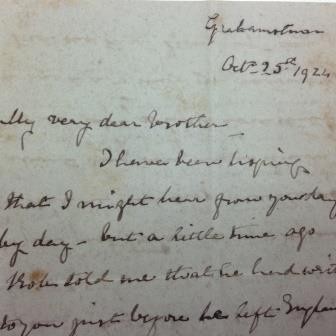 Grahamstown
Octr 25th 1924
My very dear Brother
I have been hoping
that I might hear from you day
by day - but a little time ago
told me that he had
to you just before he left